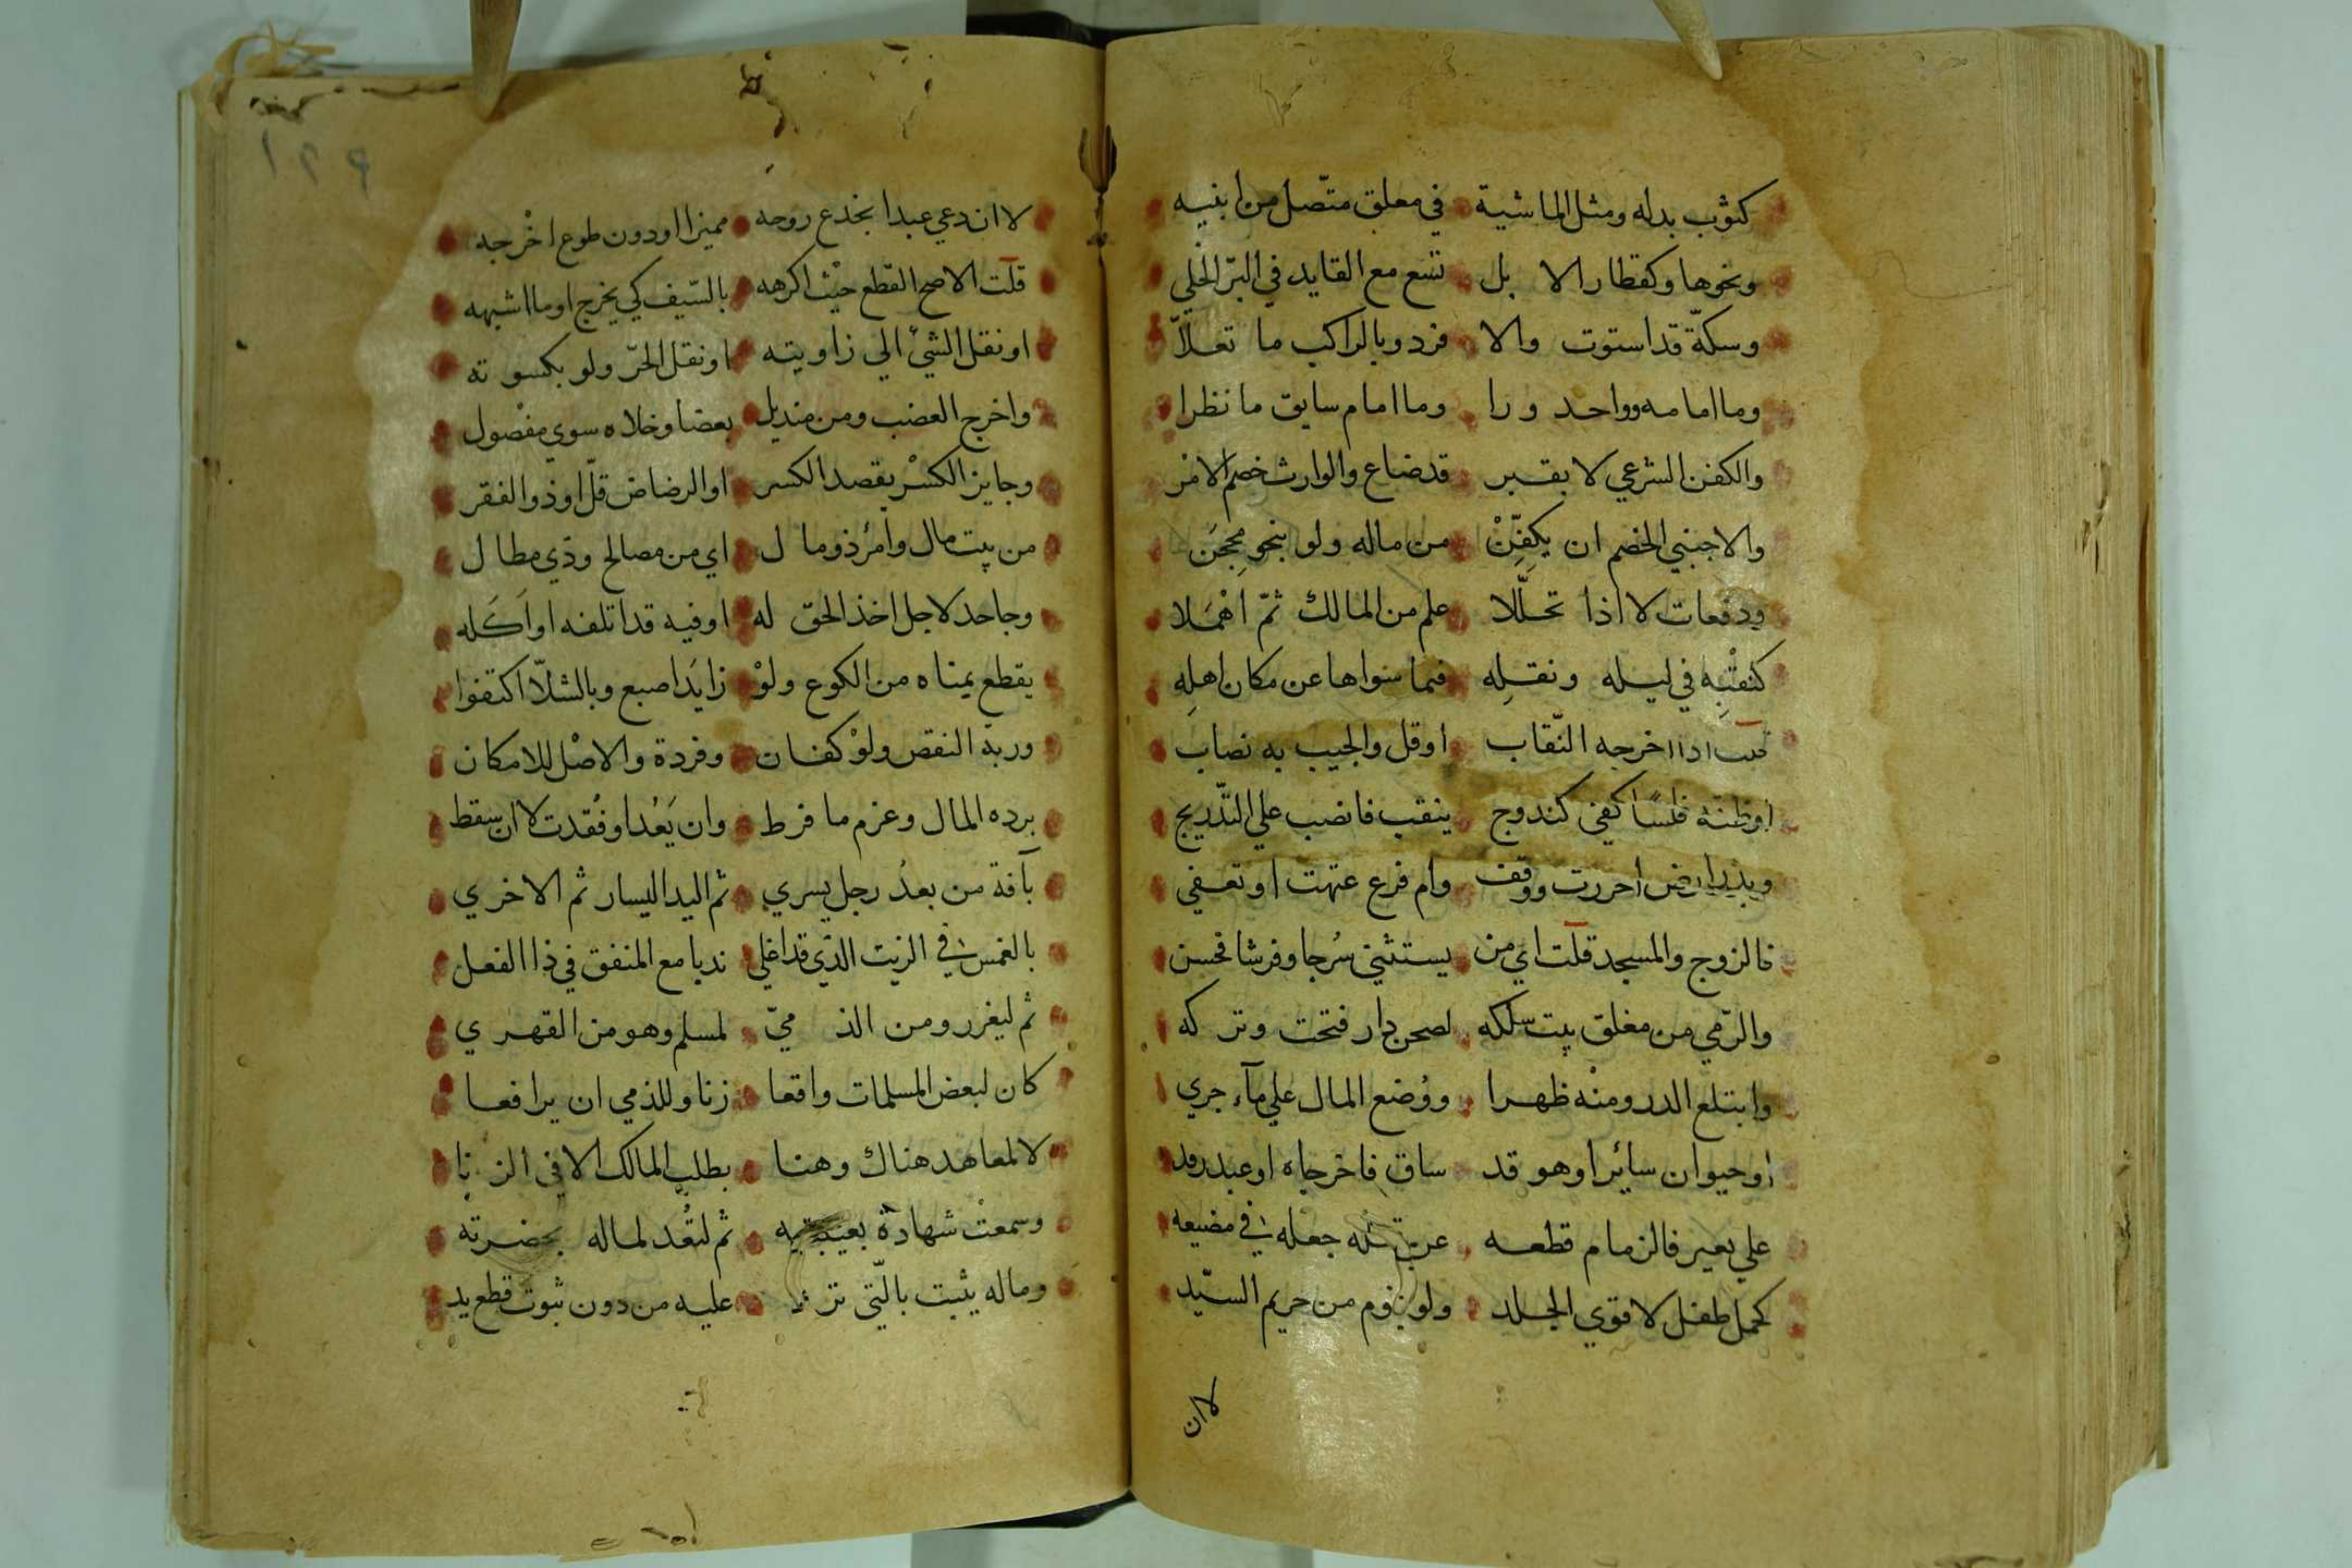 كثوب بدله ومثل الماشية في مغلق متصل من ابنيه
ونحوها وكقطار الا بل تسع مع القايد في البرّ الخلي
وسكّة قد استوت والا فرد وبالراكب ما تعلّا
وما امامه وواحد ورا وما امام سايق ما نظرا
والكفن الشرعي لا بقبر قد ضاع والوارث خصم الامر
والاجنبي الخصم ان يكفّن من ماله ولو بنحو محجن
ودفعات لا اذا تخلّلا علم من المالك ثمّ اهملا
كنقبه في ليله ونقله فما سواها عن مكان اهله
قلت اذا اخرجه النّقاب او قل والجيب به نصاب
او ظنه فلسًا كفى كندوج ينقب فانصب علي التّدريج
وبذر ارض احرزت ووقف وام فرع عتهت او تعفي
فالزوج والمسجد قلت اي من يستثني سُرجا وفرشا فحسن
والرّمي من مغلق بيت سلكه لصحن دار فتحت وتركه
وابتلع الدر ومنْه ظهرا ووُضع المال علي مآء جري
او حيوان سائرا وهو قد ساق فاخرجاه او عبد رقد
علي بعير فالزمام قطعه عن جعله في مضيعه
كحمل طفل لا قوي الجلد ولو بنوم من حريم السيّد
لا ان
لا ان دعي عبدا بخدع روحه مميزا او دون طوع اخْرجه
قلت الاصح القطع حيْث اكرهه بالسّيف كي يخرج او ما اشبهه
او نقل الشئ الي زاويته او نقل الحرّ ولو بكسوته
واخرج العضب ومن منديل بعضا وخلاه سوي مفْصول
وجايز الكسْر بقصد الكسر او الرضاض قلّ او ذو الفقر
من بيت مال وامرُء ذو مال اي من مصالح وذي مطال
وجاحد لاجل اخذ الحق له او فيه قد اتلفه او اَكَله
يقطع يمناه من الكوع ولوْ زايَدَ اصبع وبالشلّا اكتفوا
وربة النقص ولوْ كفان وفردة والاصْل للامكان
برده المال وغرم ما فرط وان يَعُدا وفُقدت لا ان سقط
بآفة من بعدُ رجل يسري ثم اليد اليسار ثم الاخري
بالغمس في الزيت الذي قد اغلي ندبا مع المنفق في ذا الفعل
ثم ليغرر ومن الذميّ لمسلم وهو من القهري
كان لبعض المسلمات واقعا زنا وللذمي ان يرافعا
لا لمعاهد هناك وهنا بطلب المالك لا في الزنا
وسمعتْ شهادة بغيبته ثم لتُعد لماله بحضرته
وماله يثبت بالّتي ترد عليه من دون ثبوت قطع يد